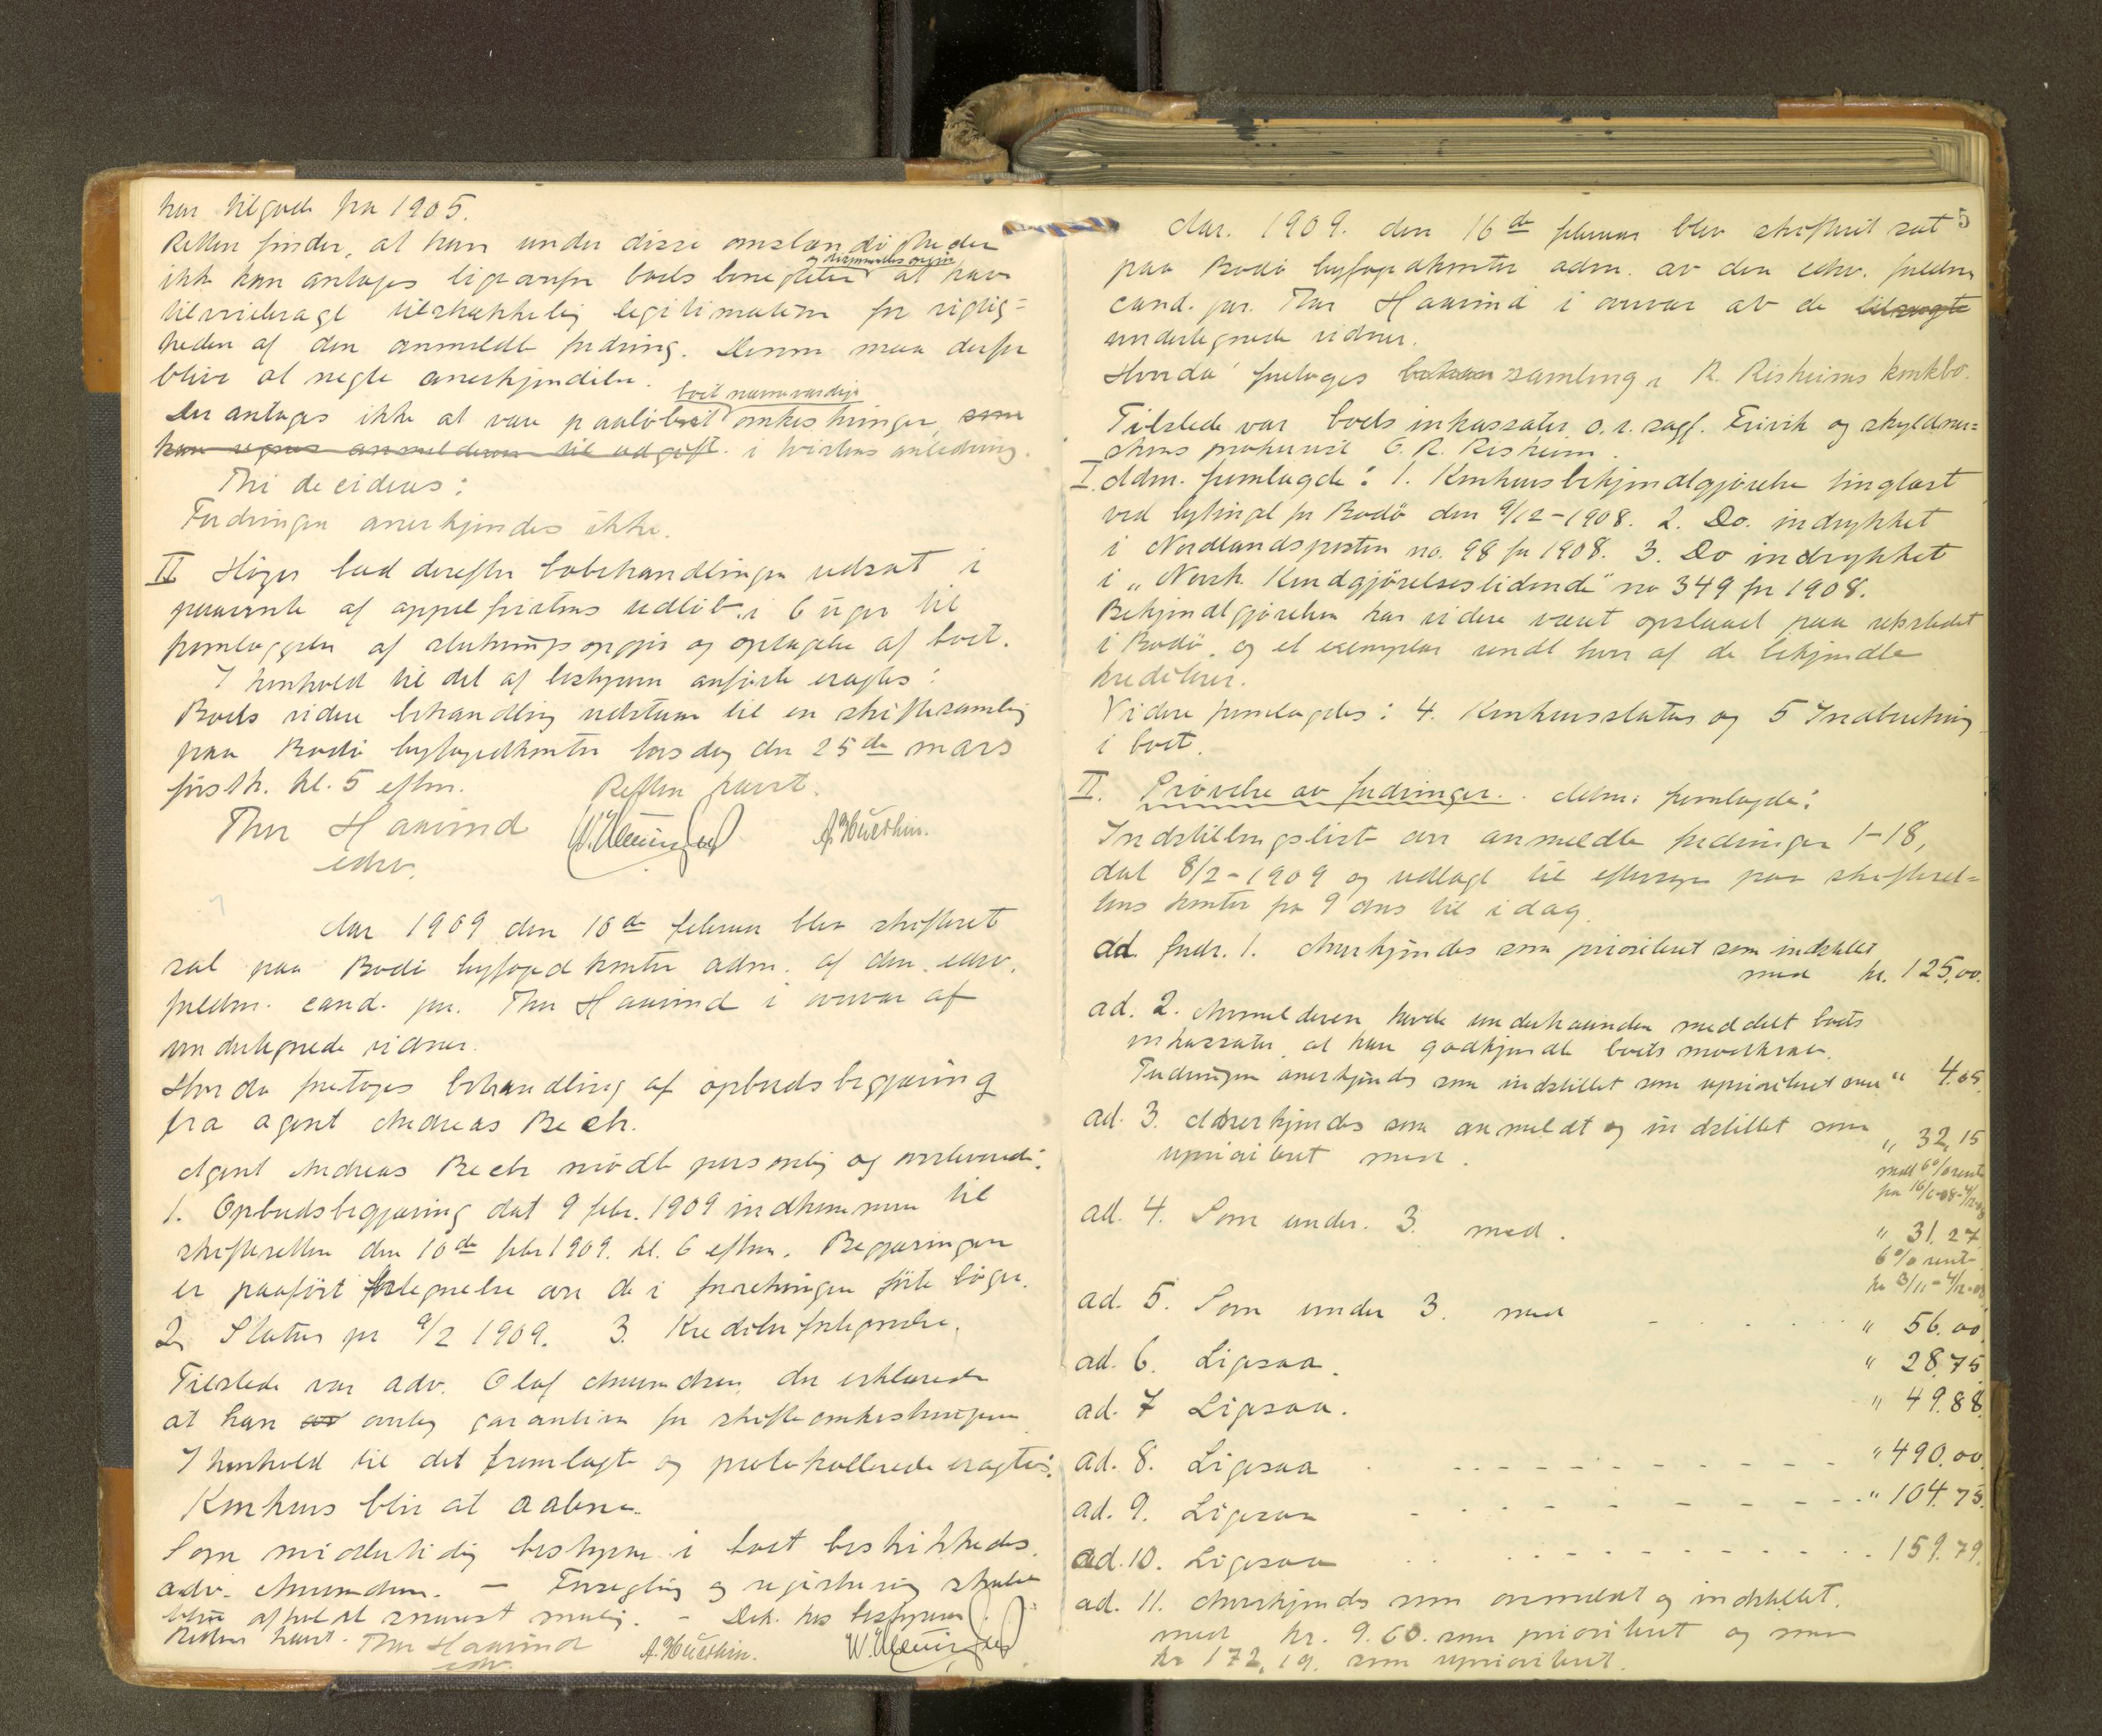 har tilgode fra 1905.
Retten finder, at han under disse omstændigheder
ikke kan antages ligeoverfor boets benegtelse og hjemmelsopgjør at have
tilveiebragt tilstrækkelig legitimation for rigtig-
heden af den anmeldte fordring. Denne maa derfor
blive at negte anerkjendelse.
Der antages ikke at være paaløbet boet nævneværdige omkostninger, som
kan regnes anmelderen til udgift. i tvistens anledning.
Thi decideres:
Fordringen anerkjendes ikke.
II bad derefter bobehandlingen udsat i
paavente af appelfristens udløb i 6 uger til
fremlæggelse af slutningsopgjør og optagelse af boet.
I henhold til det af bestyreren anførte eragtes:
Boets videre behandling udstaar til en skiftesamling
paa Bodø byfogedkontor torsdag den 25de mars
førstk. kl. 5 eftm. Retten hævet.
Thor Haavind
edsv.
Aar 1909 den 10de februar blev skifteret
sat paa Bodø byfogedkontor adm. af den edsv.
fuldm. cand. jur. Thor Haavind i overvær af
undertegnede vidner.
Hvorda foretoges behandling af opbudsbegjæring
fra agent Andreas Bech.
Agent Andreas Bech mødte personlig og overleverede:
1. Opbudsbegjæring dat 9 febr. 1909 indkommen til
skifteretten den 10de febr 1909. kl. 6 eftm. Begjæringen
er paaført fortegnelse over de i forretningen førte bøger.
2. Status pr 9/2 1909. 3. Kreditorfortegnelse.
Tilstede var adv. Olaf Amundsen, der erklærede
at han overtog garantien for skifteomkostningerne
I henhold til det fremlagte og protokollerede eragtes:
Konkurs blir at aabne.
Som midlertidig bestyrer i boet beskikkedes
adv. Amundsen. — Forsegling og registrering skulde
blive afholdt snarest mulig. - Dok. hos bestyreren.
Retten hævet. Thor Haavind
edsv.
5
Aar. 1909. den 16de februar blev skifteret sat
paa Bodø byfogedkontor adm. av den edsv. fuldm.
cand. jur. Thor Haavind i overvær av de tilsagte
undertegnede vidner.
Hvorda foretoges samling i R. Risheims konkbo.
Tilstede var boets inkassator o.r. sagf. Eivik og skyldner-
skens prokurist O. R. Risheim.
I. Adm. fremlagde: 1. Konkursbekjendtgjørelse tinglæst
ved bytinget for Bodø den 9/12-1908. 2. Do. indrykket
i Nordlandsposten no. 98 for 1908. 3. Do indrykket
i „Norsk Kundgjørelsestidende" no 349 for 1908.
Bekjendtgjørelsen har videre været opslaaet paa retsstedet
i Bodø, og et exemplar sendt hver af de bekjendte
kreditorer.
Videre fremlagdes: 4. Konkursstatus og 5 Indberetning
i boet.
II. Prøvelse av fordringer. Adm. fremlagde:
Indstillingsliste over anmeldte fordringer 1-18,
dat 8/2-1909 og udlagt til eftersyn paa skifteret-
tens kontor fra 9 ds til idag.
ad fordr. 1. Anerkjendes som prioriteret som indstillet
med kr. 125,00.
ad. 2. Anmelderen havde underhaanden meddelt boets
inkassator, at han godkjendte boets modkrav.
Fordringen anerkjendes som indstillet som uprioriteret med " 4.05
ad. 3. Anerkjendes som anmeldt og indstillet som
uprioriteret med. " 32,15
med 6% rente
ad. 4. Som under. 3. med. " 31.27
6% rente
fra 3/11-4/12-08
ad. 5. Som under 3. med " 56.00
ad. 6. Ligesaa. " 28.75
ad. 7 Ligesaa. " 49.88.
ad. 8. Ligesaa " 490.00.
ad. 9. Ligesaa " 104.75.
ad. 10. Ligesaa 159.79.
ad. 11. Anerkjendes som anmeldt og indstillet.
med kr. 9.60. som prioriteret og med
kr 172,19. som uprioriteret.